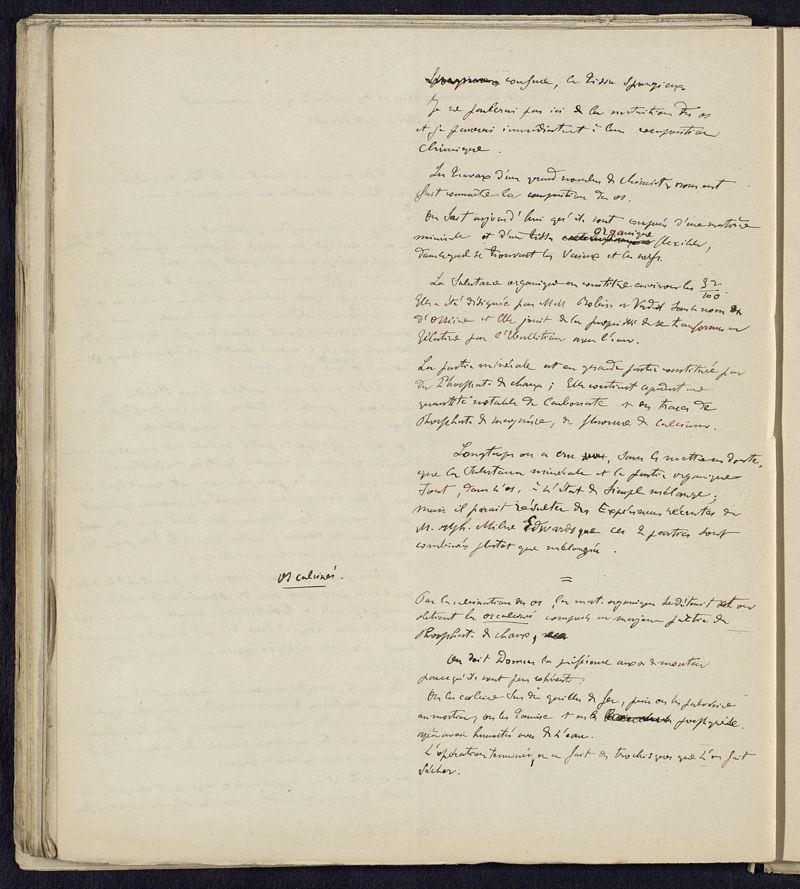 confuse, le tissu spongieux
Je ne parlerai pas ici de la nutrition des os
et je passerai immédiatement à leur composition
chimique.
Les travaux d'un grand nombre de chimistes nous ont
fait connaître la composition des os.
On sait aujourd'hui qu'ils sont composés d'une matière
minérale et d'un tissu organique flexible,
dans lequel se trouvent les vaisseaux et les nerfs.
La substance organique en constitue environ les 32/100.
Elle a été désignée par MM. Robin et Verdeil sous le nom
d'osséine et elle jouit de la propriété de se transformer en
gélatine par l'ébullition avec l'eau.
La partie minérale est en grande partie constituée par
du Phosphate de chaux ; Elle contient cependant une
quantité notable de Carbonate et des traces de
Phosphate de magnésie, de fluorure de calcium.
Longtemps on a cru, sans le mettre en doute,
que la substance minérale et la partie organique
sont, dans l'os, à l'état de simple mélange ;
mais il paraît résulter des Expériences récentes de
M. Alph. Milne Edwards que ces 2 parties sont
combinées plutôt que mélangées.
=
os calcinés.
Par la calcination des os, la mat. organique se détruit et on
obtient les os calcinés composés en majeure partie de
Phosphate de chaux,
On doit Donner la préférence aux os de mouton
parce qu'ils sont peu cohérents.
On les calcine sur des grilles de fer, puis on les pulvérise
au mortier, on les tamise et on les porphyrise
après avoir humectés avec de l'eau.
L'opération terminée, on en fait des trochisques que l'on fait
sécher.